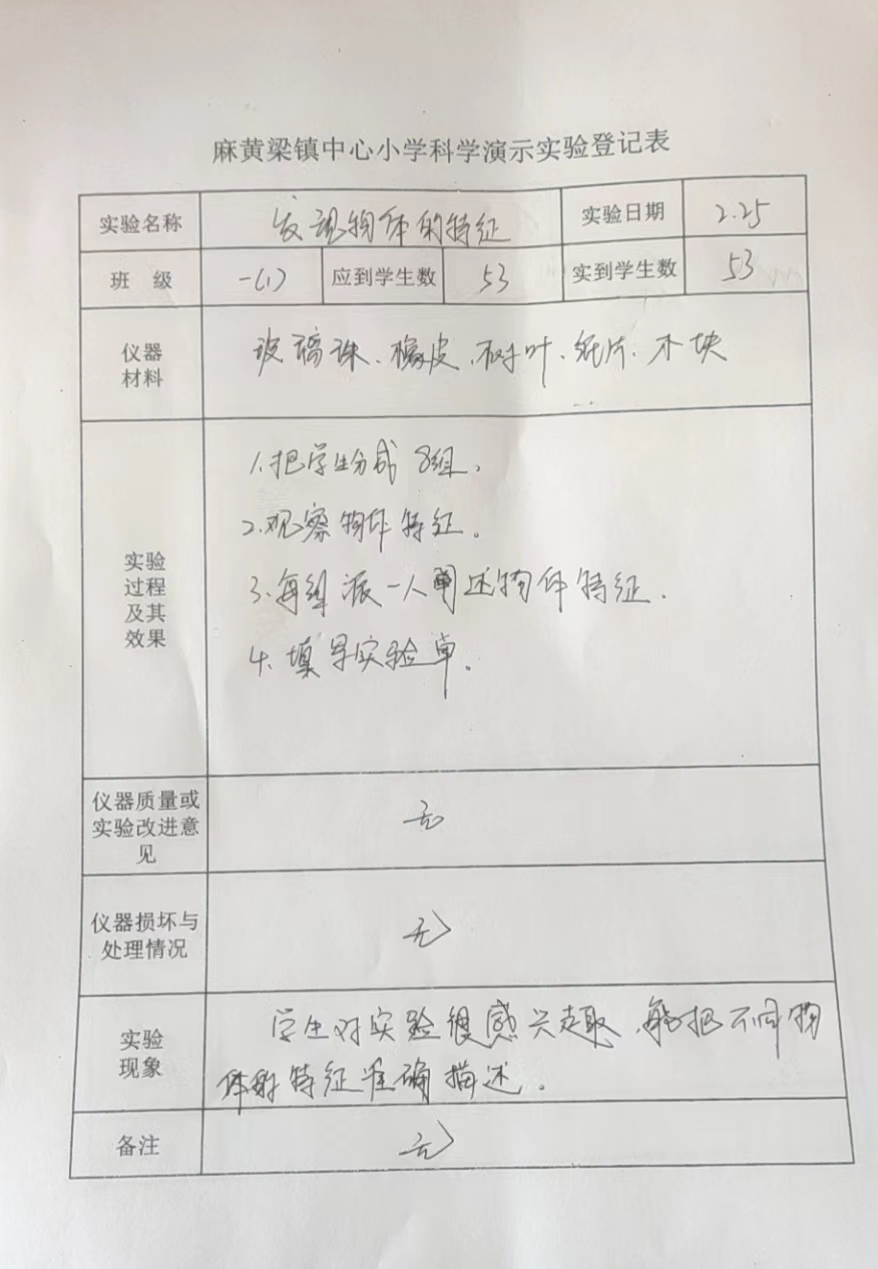 麻黄梁镇中心小学科学演示实验登记表
实验名称 发现物体的特征 实验日期 2.25
班 级 一(1) 应到学生数 53 实到学生数 53
仪器
材料
玻璃珠、橡皮、树叶、纸片、木块
实验
过程
及其
效果
1.把学生分成8组。
2.观察物体特征。
3.每组派一人阐述物体特征.
4.填写实验单.
仪器质量或
实验改进意
见
无
仪器损坏与
处理情况
无
实验
现象
学生对实验很感兴趣,能把不同物
体的特征准确描述.
备注 无